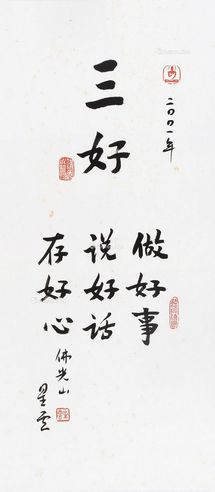 二〇〇一年
三好
做好事
说好话
存好心
佛光山
星云